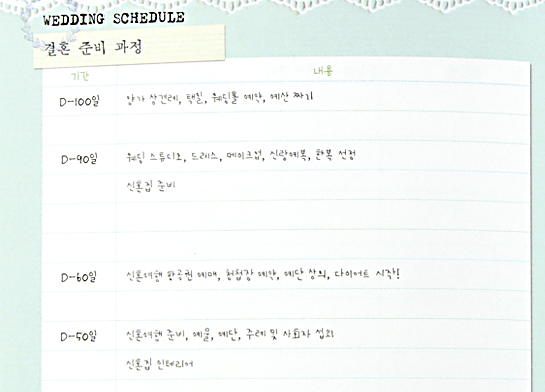 WEDDING SCHEDULE
결혼 준비 과정
기간 내용
D-100일 양가 상견례, 택일, 웨딩홀 예약, 예산 짜기
D-90일 웨딩 스튜디오, 드레스, 메이크업, 신랑예복, 한복 선정
신혼집 준비
D-60일 신혼여행 항공권 예매, 청첩장 예약, 예단 상의, 다이어트 시작!
D-50일 신혼여행 준비, 예물, 예단, 주례 및 사회자 섭외
신혼집 인테리어